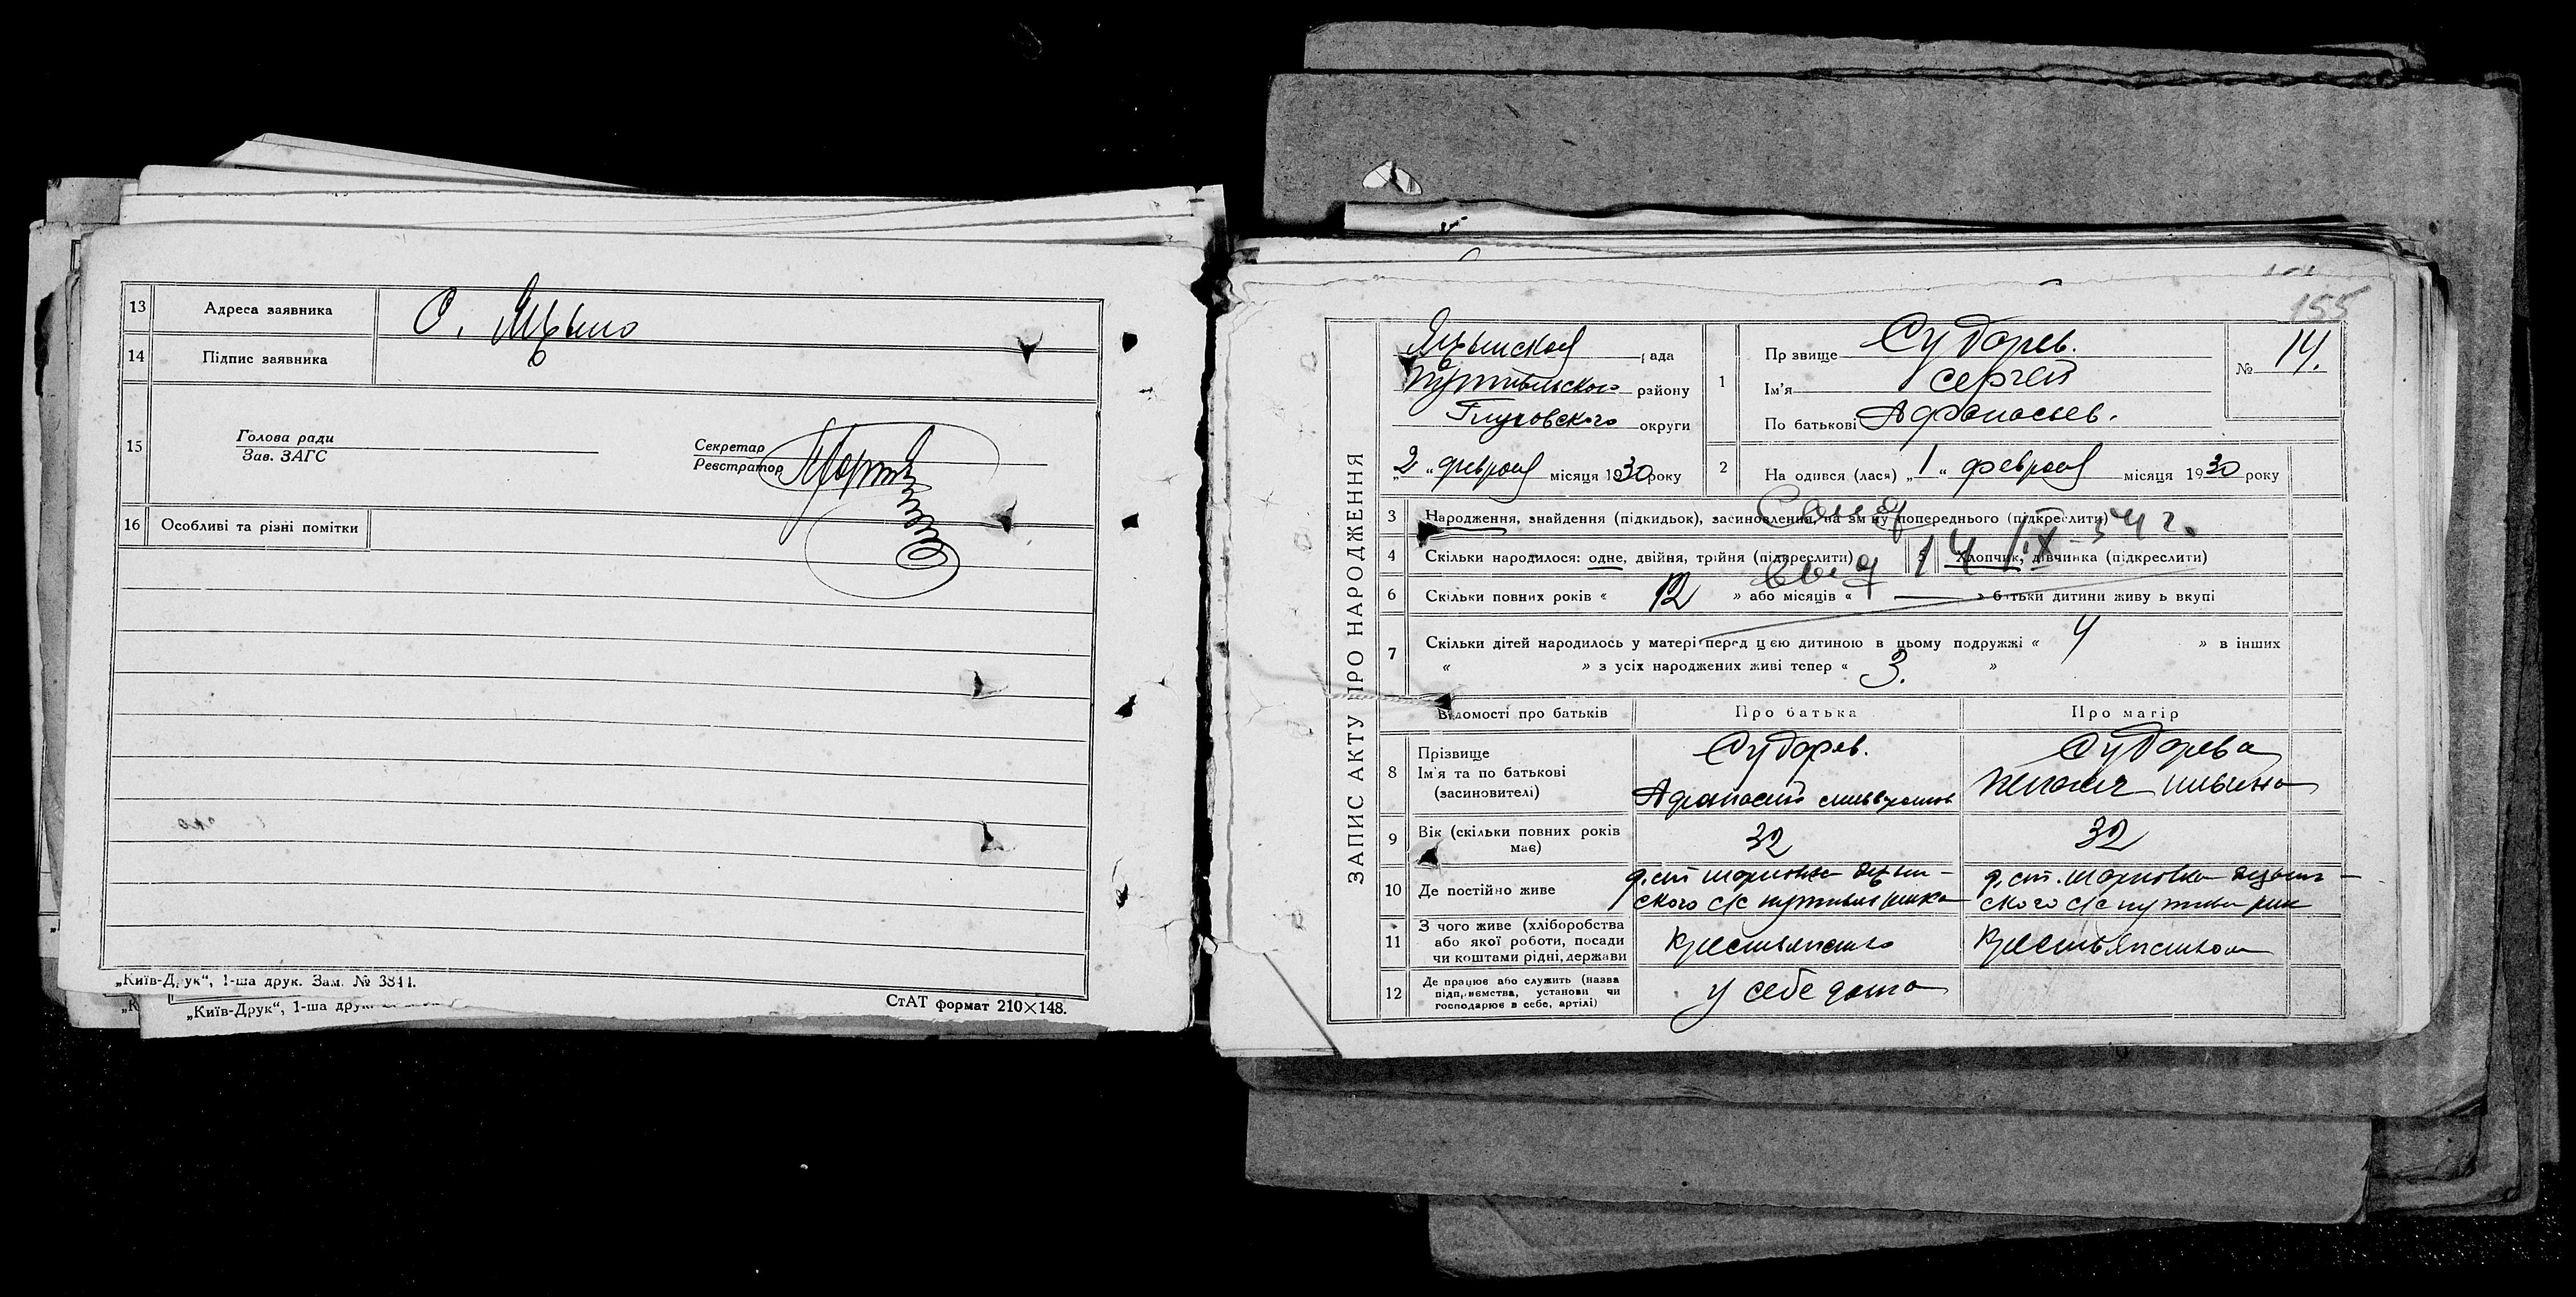 13 Адреса заявника С. Яцыно
14 Підпис заявника
15 Голова ради
Зав. ЗАГС
Секретар
Реєстратор
16 Особливі та різні помітки
„Київ-Друк“, 1-ша друк. Зам. № 3841.
„Київ-Друк“, 1-ша
СтАТ формат 210×148.
155
ЗАПИС АКТУ ПРО НАРОДЖЕННЯ
Яцынская рада
Путивльского району
Глуховского округи
„2“ февраля місяця 1930 року
1 Прізвище Суборев.
Ім’я Сергей
По батькові Афанасьев.
№ 14.
2 Народився (лася) „1“ февраля місяця 1930 року
3 Народження, знайдення (підкидьок), засиновлення, на зміну попереднього (підкреслити)
4 Скільки народилося: одне, двійня, трійня (підкреслити) 5 Хлопчик, дівчинка (підкреслити)
14 IX 54 г.
6 Скільки повних років « 12 » або місяців « — » батьки дитини живуть вкупі
7 Скільки дітей народилось у матері перед цією дитиною в цьому подружжі « 4 » в інших
« » з усіх народжених живі тепер « 3. »
Відомості про батьків Про батька Про матір
8 Прізвище
Ім’я та по батькові
(засиновителі)
Суборев.
Афанасий
Суборева
9 Вік (скільки повних років має) 32 32
10 Де постійно живе
ского с/с
ского с/с
11 З чого живе (хліборобства
або якої роботи, посади
чи коштами рідні, держави
12 Де працює або служить (назва
підприємства, установи чи
господарює в себе, артілі)
у себе дома